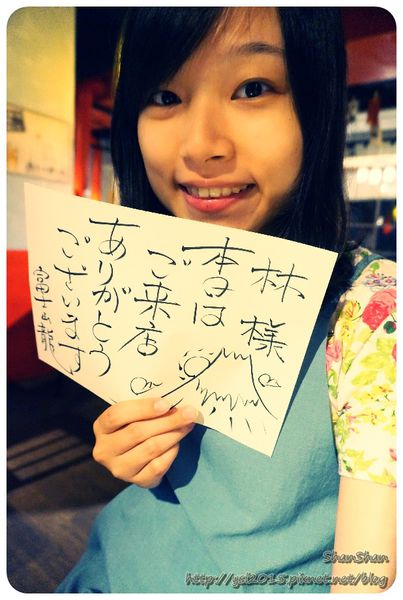 林様
本日は
ご来店
ありがとう
ございます
ShanShan
http://ysl2015.pixnet.net/blog